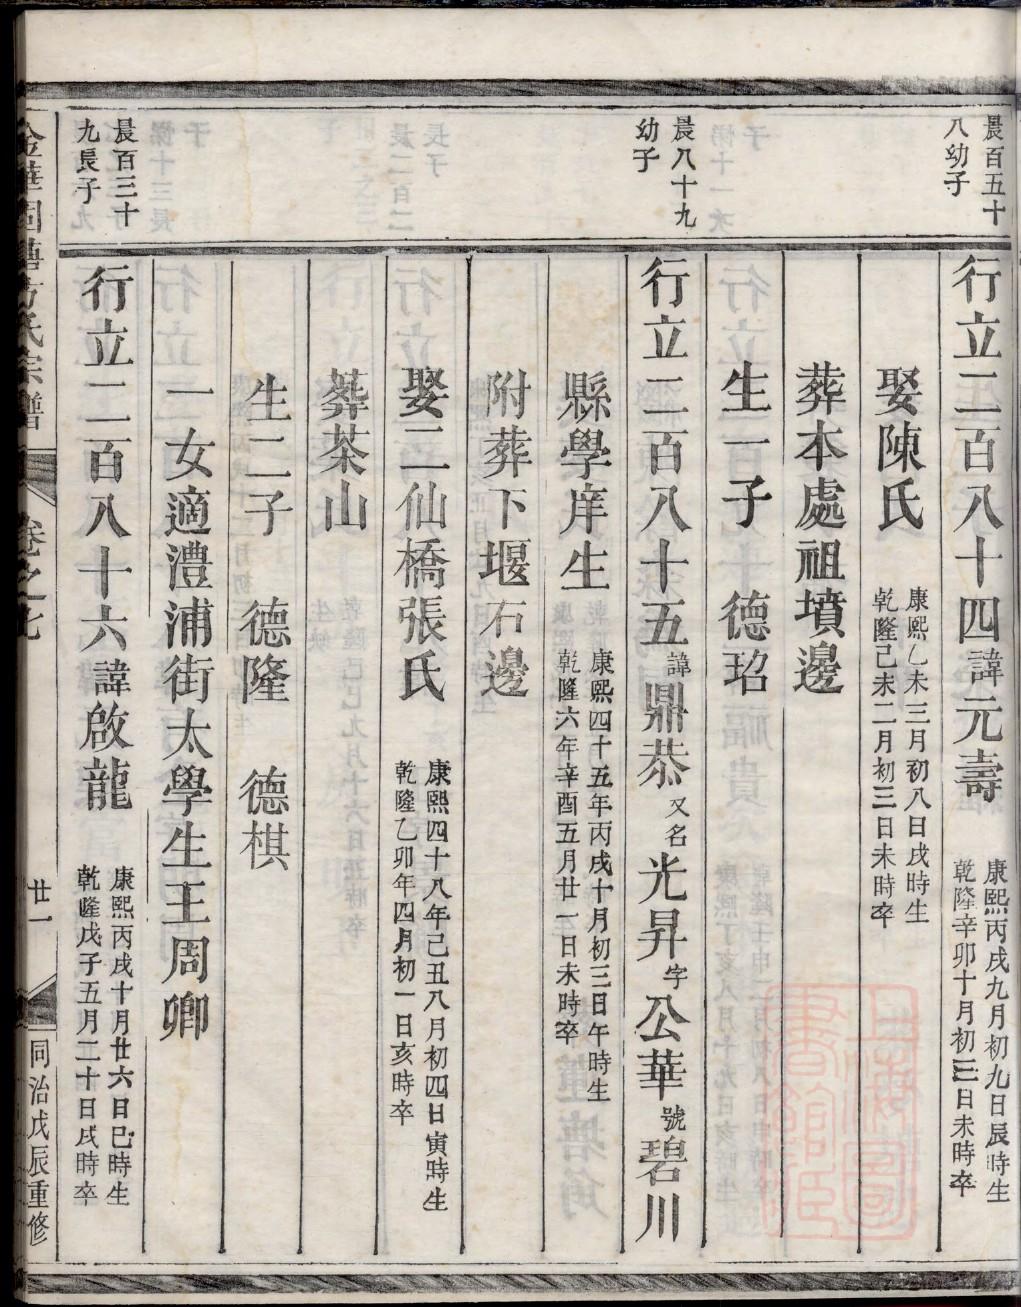 晨百五十
八幼子
行立二百八十四諱元壽
康熙丙戌九月初九日辰時生
乾隆辛卯十月初三日未時卒
娶陳氏
康熙乙未三月初八日戌時生
乾隆己未二月初三日未時卒
葬本處祖墳邊
生一子 德玿
晨八十九
幼子
行立二百八十五諱鼎恭又名光昇字公華號碧川
縣學庠生
康熙四十五年丙戌十月初三日午時生
乾隆六年辛酉五月廿一日未時卒
附葬下堰石邊
娶二仙橋張氏
康熙四十八年己丑八月初四日寅時生
乾隆乙卯年四月初一日亥時卒
葬茶山
生二子 德隆 德棋
一女適澧浦街太學生王周卿
晨百三十
九長子
行立二百八十六諱啟龍
康熙丙戌十月廿六日巳時生
乾隆戊子五月二十日戌時卒
金華國塘方氏宗譜
卷之七
廿一
同治戊辰重修
上海圖書館藏